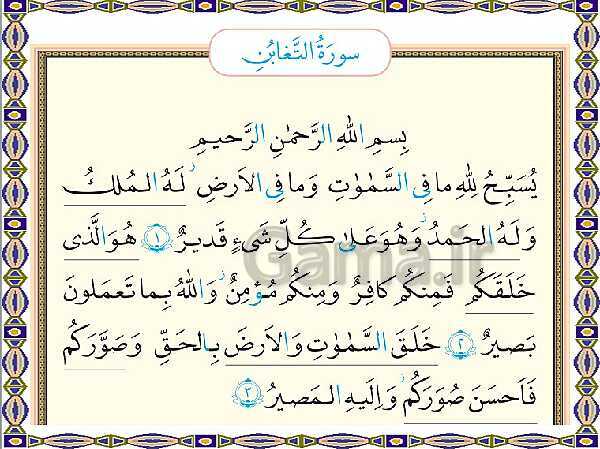 سورَةُ التَّغابُنِ
بِسمِ اللّٰهِ الرَّحمٰنِ الرَّحيمِ
يُسَبِّحُ لِلّٰهِ ما فِی السَّمٰوٰتِ وَما فِی الاَرضِ لَهُ المُلكُ
وَلَهُ الحَمدُ وَهُوَ عَلیٰ كُلِّ شَیءٍ قَديرٌ ﴿۱﴾ هُوَ الَّذی
خَلَقَكُم فَمِنكُم كافِرٌ وَمِنكُم مُؤمِنٌ وَاللّٰهُ بِما تَعمَلونَ
بَصيرٌ ﴿۲﴾ خَلَقَ السَّمٰوٰتِ وَالاَرضَ بِالحَقِّ وَصَوَّرَكُم
فَاَحسَنَ صُوَرَكُم وَاِلَيهِ المَصيرُ ﴿۳﴾
Gama.ir